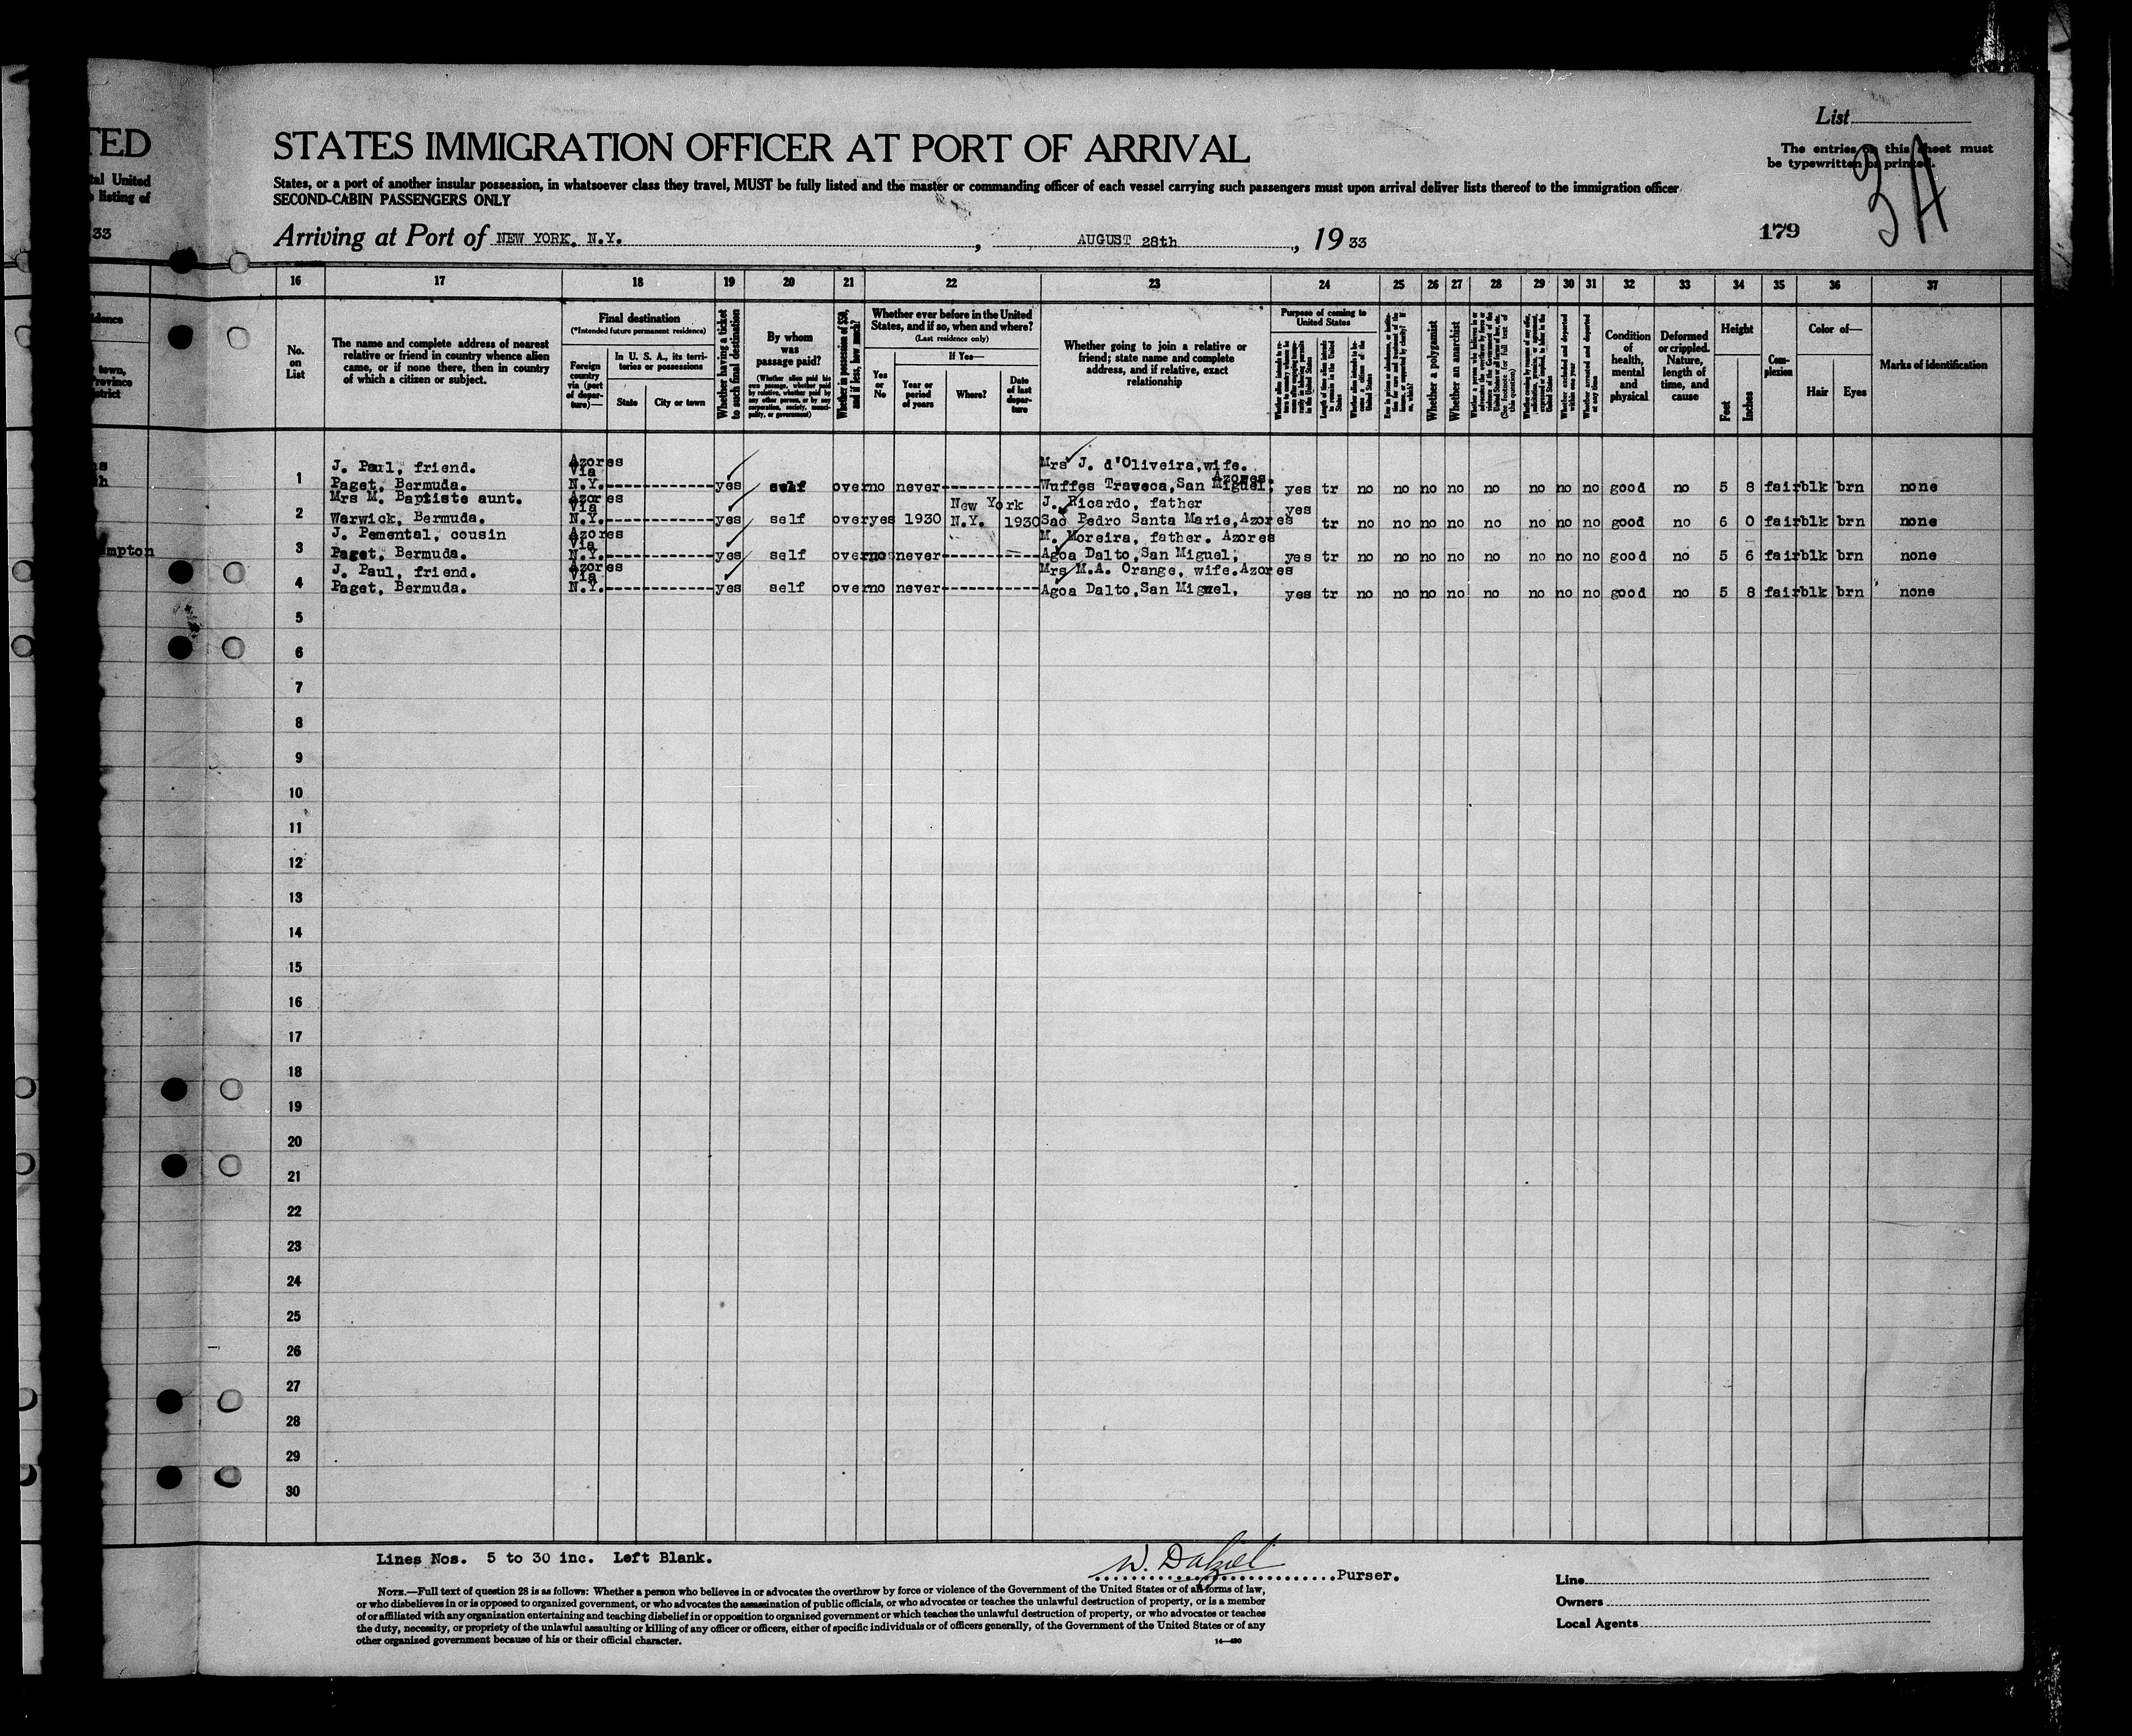 TED
STATES IMMIGRATION OFFICER AT PORT OF ARRIVAL
List
The entries on this sheet must
be typewritten or printed.
3A
tal United
listing of
States, or a port of another insular possession, in whatsoever class they travel, MUST be fully listed and the master or commanding officer of each vessel carrying such passengers must upon arrival deliver lists thereof to the immigration officer
SECOND-CABIN PASSENGERS ONLY
33
Arriving at Port of NEW YORK, N.Y. , AUGUST 28th , 19 33
179
16 17 18 19 20 21 22 23 24 25 26 27 28 29 30 31 32 33 34 35 36 37
No. on List
The name and complete address of nearest
relative or friend in country whence alien
came, or if none there, then in country
of which a citizen or subject.
Final destination
(*Intended future permanent residence)
Foreign country via (port of departure)—
In U. S. A., its territories or possessions
State
City or town
Whether having a ticket to such final destination
By whom was passage paid?
(Whether alien paid his own passage, whether paid by relative, whether paid by any other person, or by any corporation, society, municipality, or government)
Whether in possession of $50, and if less, how much?
Whether ever before in the United
States, and if so, when and where?
(Last residence only)
Yes or No
If Yes—
Year or period of years
Where?
Date of last departure
Whether going to join a relative or
friend; state name and complete
address, and if relative, exact
relationship
Purpose of coming to
United States
Length of time alien intends to remain in the United States
Whether alien intends to become a citizen of the United States
Whether a polygamist
Whether an anarchist
Whether excluded and deported within one year
Whether arrested and deported at any time
Condition of health, mental and physical
Deformed or crippled. Nature, length of time, and cause
Height
Feet
Inches
Complexion
Color of—
Hair
Eyes
Marks of identification
1 J. Paul, friend. Paget, Bermuda. Azores Via N.Y. yes self over no never Mrs J. d'Oliveira, wife. Wuffes Traveca, San Miguel, Azores. yes tr no no no no no no no no good no 5 8 fair blk brn none
2 Mrs M. Baptiste aunt. Warwick, Bermuda. Azores Via N.Y. yes self over yes 1930 New York N.Y. 1930 J. Ricardo, father Sao Pedro Santa Marie, Azores yes tr no no no no no no no no good no 6 0 fair blk brn none
3 J. Pemental, cousin Paget, Bermuda. Azores Via N.Y. yes self over no never M. Moreira, father. Azores Agoa Dalto, San Miguel, yes tr no no no no no no no no good no 5 6 fair blk brn none
4 J. Paul, friend. Paget, Bermuda. Azores Via N.Y. yes self over no never Mrs M.A. Orange, wife. Azores Agoa Dalto, San Miguel, yes tr no no no no no no no no good no 5 8 fair blk brn none
5
6
7
8
9
10
11
12
13
14
15
16
17
18
19
20
21
22
23
24
25
26
27
28
29
30
Lines Nos. 5 to 30 inc. Left Blank.
W. Dalziel
Purser.
NOTE.—Full text of question 28 is as follows: Whether a person who believes in or advocates the overthrow by force or violence of the Government of the United States or of all forms of law,
or who disbelieves in or is opposed to organized government, or who advocates the assassination of public officials, or who advocates or teaches the unlawful destruction of property, or is a member
of or affiliated with any organization entertaining and teaching disbelief in or opposition to organized government or which teaches the unlawful destruction of property, or who advocates or teaches
the duty, necessity, or propriety of the unlawful assaulting or killing of any officer or officers, either of specific individuals or of officers generally, of the Government of the United States or of any
other organized government because of his or their official character.
14—490
Line
Owners
Local Agents